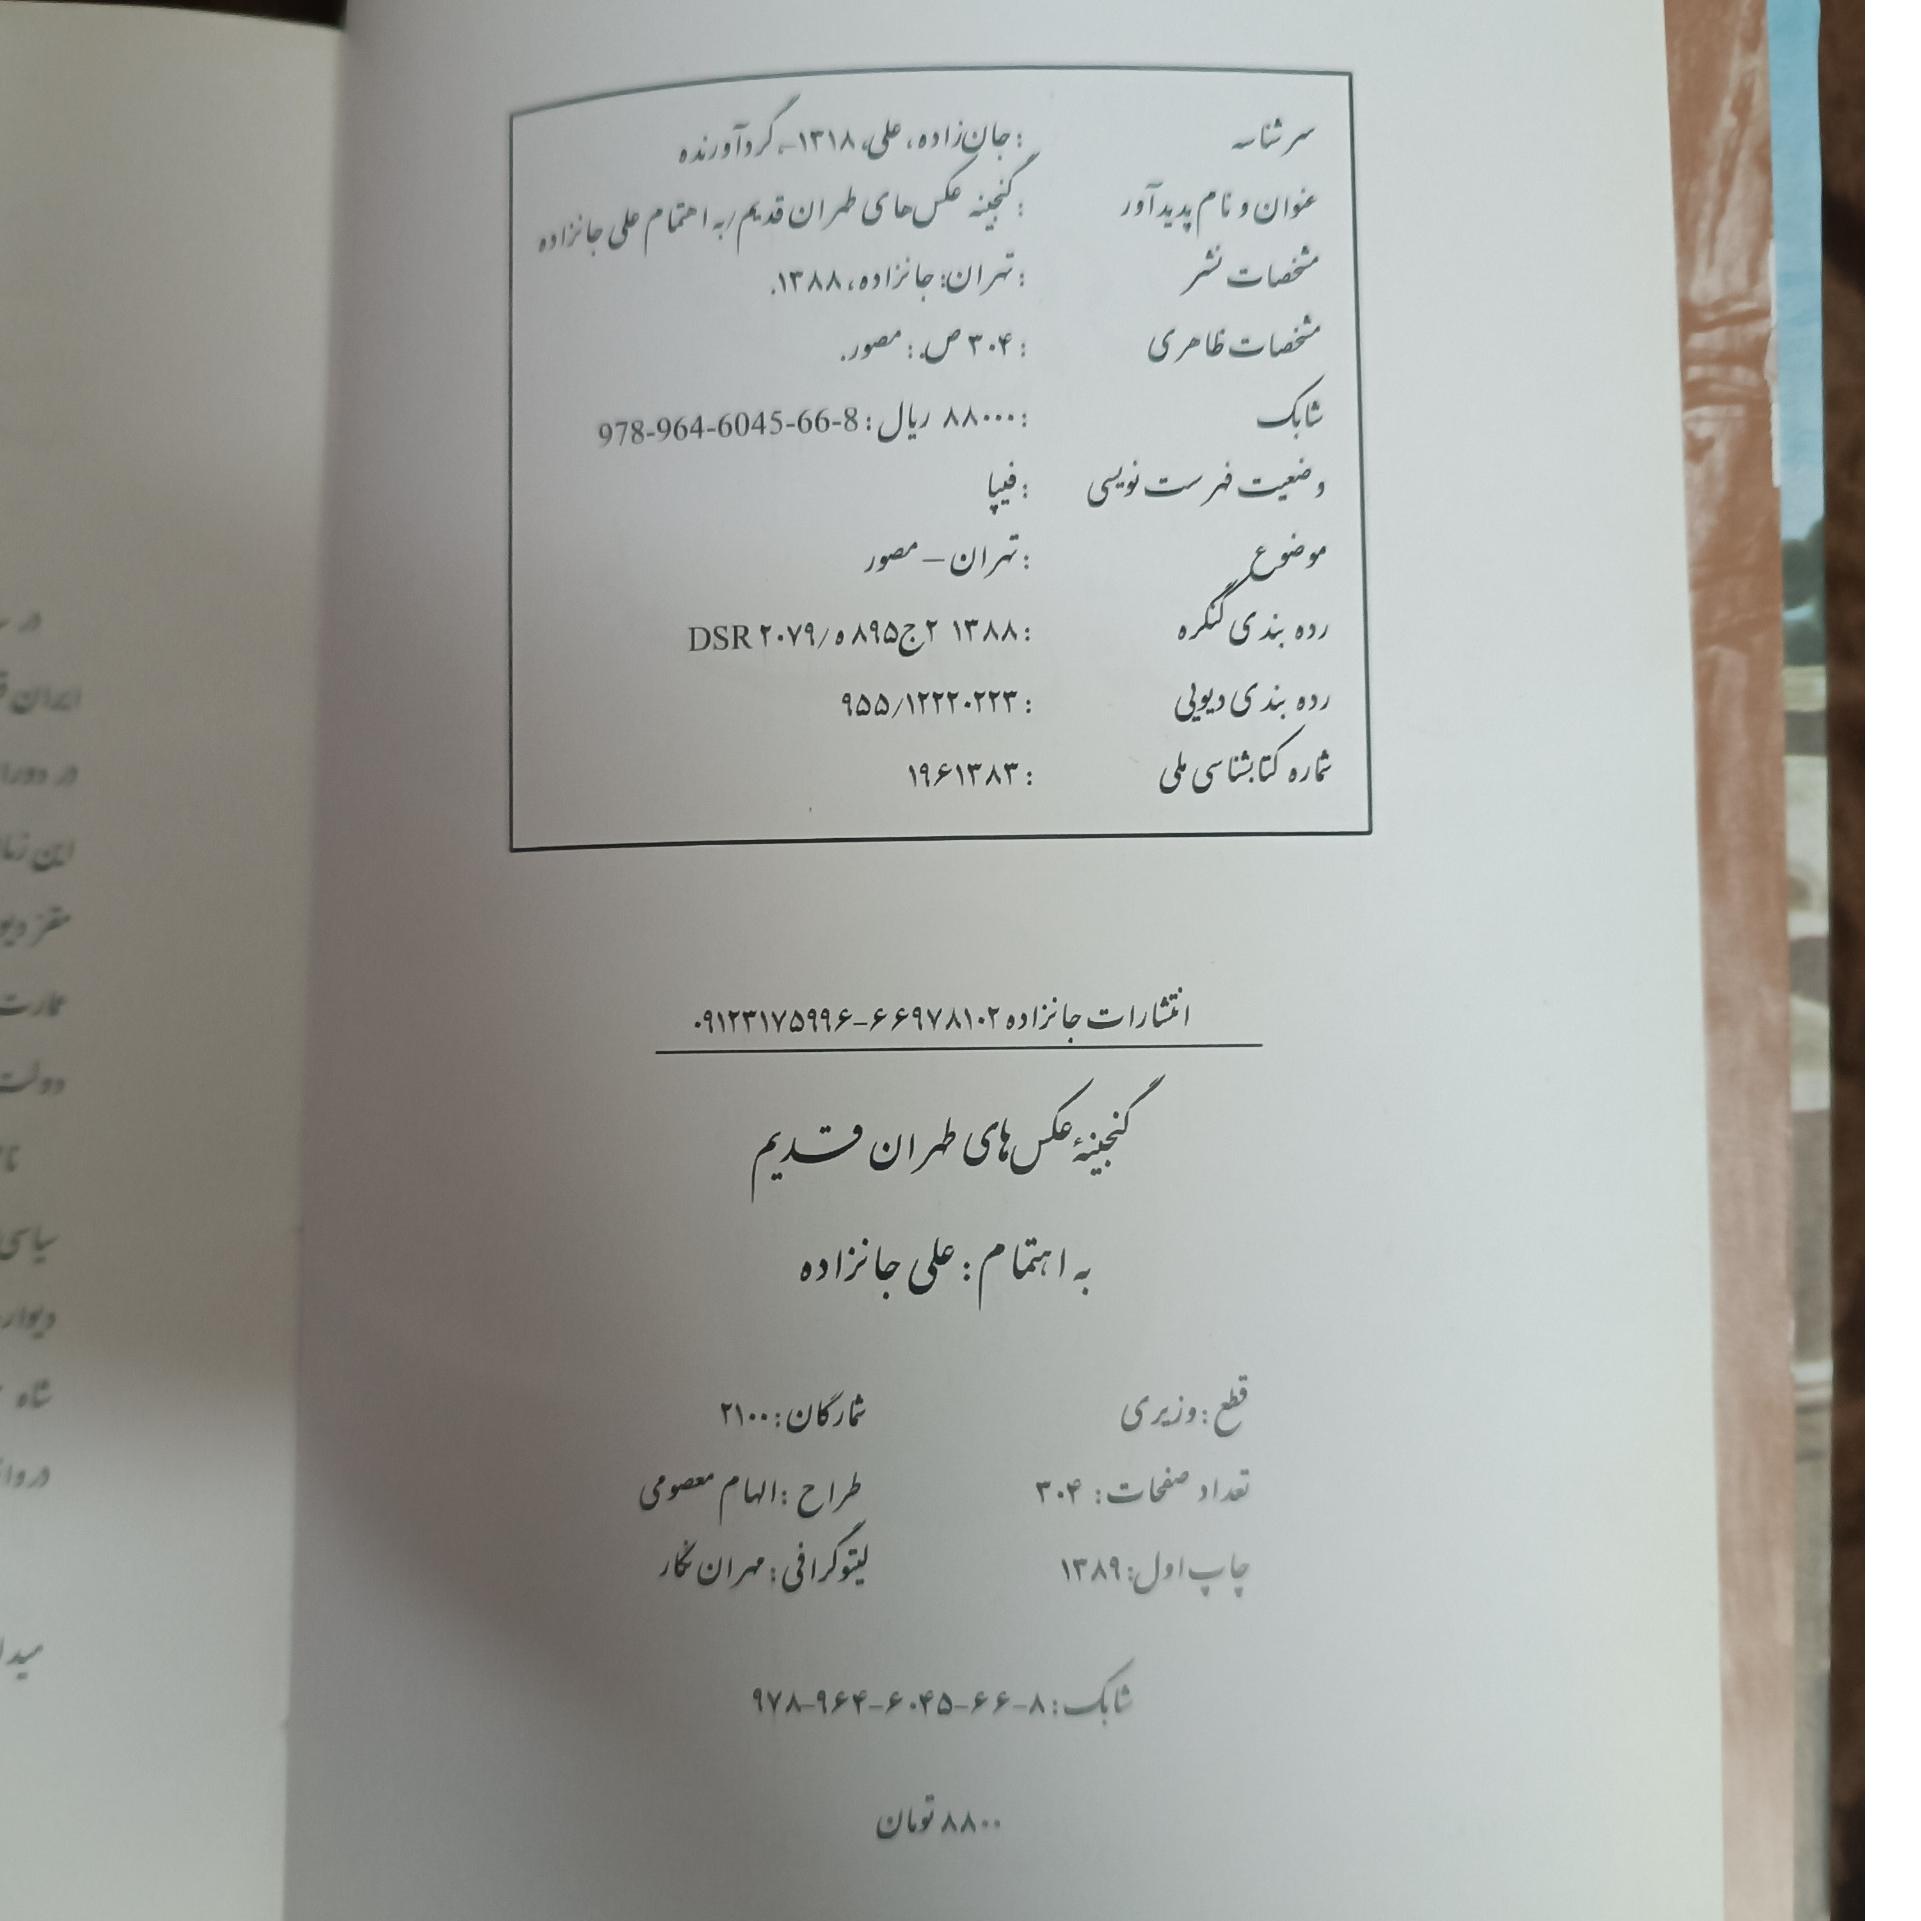 سرشناسه : جان‌زاده، علی، ۱۳۱۸ـ، گردآورنده
عنوان و نام پدیدآور : گنجینه عکس‌های طهران قدیم/به اهتمام علی جانزاده
مشخصات نشر : تهران: جانزاده، ۱۳۸۸.
مشخصات ظاهری : ۳۰۴ ص.: مصور.
شابک : ۸۸۰۰۰ ریال: 978-964-6045-66-8
وضعیت فهرست نویسی : فیپا
موضوع : تهران – مصور
رده بندی کنگره : ۱۳۸۸ ۲ج۸۹۵ه/DSR ۲۰۷۹
رده بندی دیویی : ۹۵۵/۱۲۲۲۰۲۲۳
شماره کتابشناسی ملی : ۱۹۶۱۳۸۳
انتشارات جانزاده ۶۶۹۷۸۱۰۲-۰۹۱۲۳۱۷۵۹۹۶
گنجینهٔ عکس‌های طهران قدیم
به اهتمام: علی جانزاده
قطع: وزیری شمارگان: ۲۱۰۰
تعداد صفحات: ۳۰۴ طراح: الهام معصومی
چاپ اول: ۱۳۸۹ لیتوگرافی: مهران نگار
شابک: ۸-۶۶-۶۰۴۵-۹۶۴-۹۷۸
۸۸۰۰ تومان
در
ایران
در
این
مقر
عمارت
دولت
سیاسی
دیوار
شاه